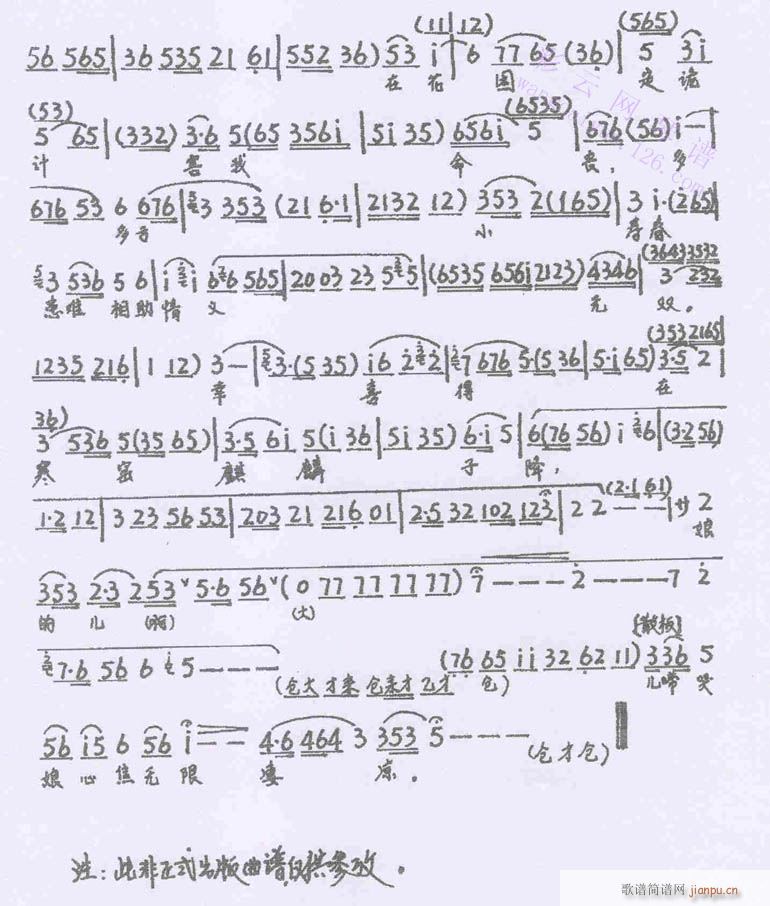 56 565 | 36 535 21 61 | 552 36) 53 i | 6 77 65 (36) | 5 3i
(11 | 12) (565)
在 花 园 定 诡
(53) (6535)
5 65 | (332) 3·6 5 (65 356i | 5i 35) 656i 5 | 676 (56) i — |
计 害我 命 丧, 多
676 53 6 676 | 3 353 (21 6·1 | 2132 12) 353 2(165) | 3 i·(265) |
多亏 小 寿春
3 536 5 6 | i i 6 565 | 20 03 23 5 5 | (6535 656i 2123) 4346 | 3 232
(36433532
患难 相助情 义 无 双。
1235 216 | 1 12) 3 — | 3·(5 35) i6 2 2 | 7 676 5·(5 36 | 5·i 65) 3·5 2 |
(3532165)
幸 喜 得 在
36)
3 536 5 (35 65) | 3·5 6i 5(i 36 | 5i 35) 6·i 5 | 6(76 56) i 6 | (3·2 56) |
寒 窑 麒 麟 子 降,
1·2 12 | 3 23 56 53 | 203 21 216 01 | 2·5 32 102 123 | 2 2 — — | 2
(2·1 61)
娘
353 2·3 253 5·6 56 (0 77 77 77 77) 7 — — — 2 — — — 7 2
的 儿 (啊) (大)
[散板]
7·6 56 6 5 — — — (76 65 ii 32 62 11) 336 5
(仓大 才来 仓来才 乙才 仓) 儿啼 哭
56 i5 6 56 i — — 4·6 464 3 353 5 — — — (仓才仓)
娘 心 焦 无 限 凄 凉。
注:此非正式出版曲谱,仅供参考。
歌谱简谱网
jianpu.cn